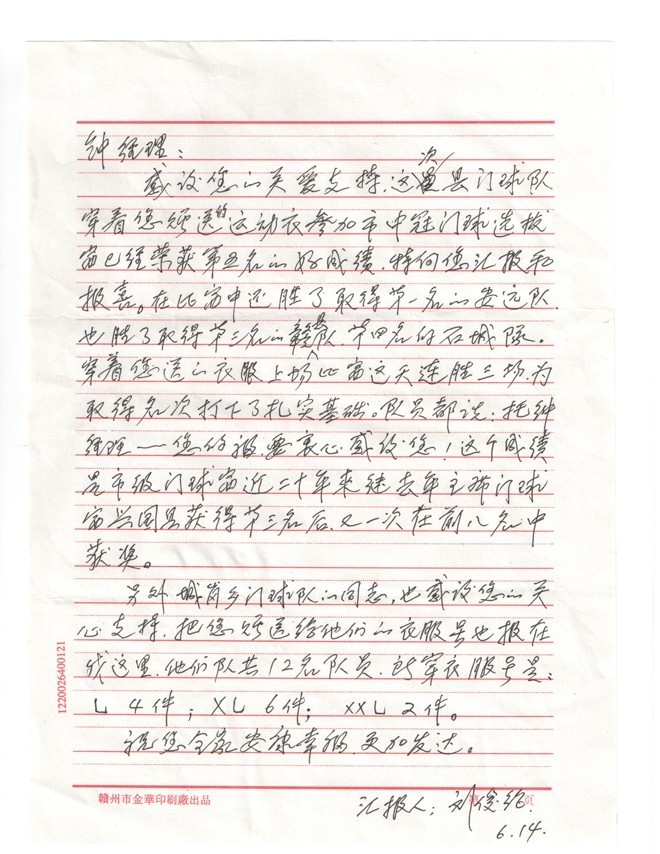 钟经理：
感谢您的关爱支持，这次我县门球队
穿着您赠送的运动衣参加市中冠门球选拔
赛已经荣获第五名的好成绩，特向您汇报和
报喜。在比赛中还胜了取得第一名的安远队，
也胜了取得第三名的赣县队，第四名的石城队。
穿着您送的衣服上场比赛这天连胜三场，为
取得名次打下了扎实基础。队员都说：托钟
经理——您的福，要衷心感谢您！这个成绩
是市级门球赛近二十年来继去年主席门球
赛兴国县获得第三名后，又一次在前八名中
获奖。
另外城岗乡门球队的同志，也感谢您的关
心支持，把您赠送给他们的衣服号也报在
我这里，他们队共12名队员，所穿衣服号是：
L 4件；XL 6件；XXL 2件。
祝您全家安康幸福，更加发达。
1220026400121
赣州市金華印刷廠出品
第 页
汇报人：刘俊
6.14.